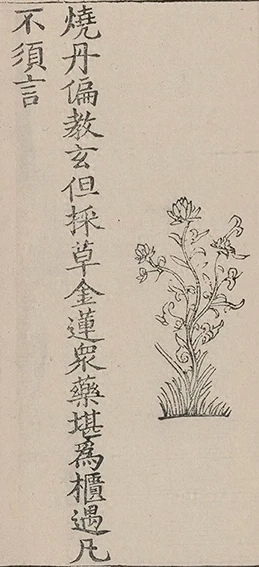 燒丹偏教玄但採草金蓮衆藥堪為櫃遇凡
不須言